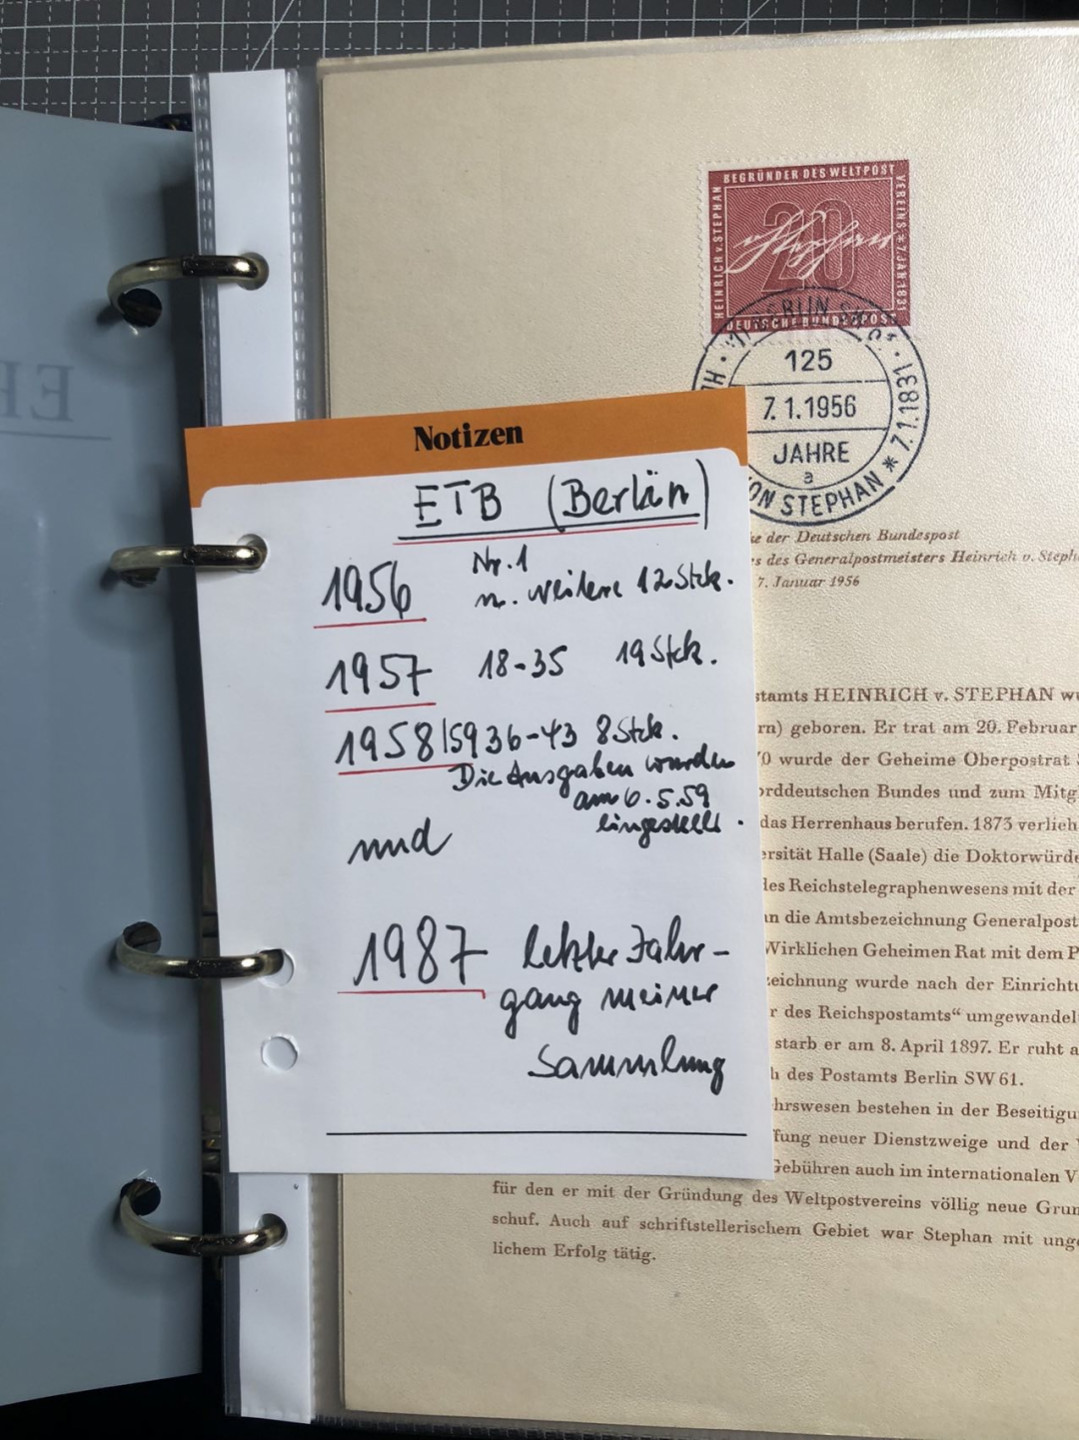 BEGRÜNDER DES WELTPOST
VEREINS * 7. JAN. 1831
HEINRICH v. STEPHAN
20
DEUTSCHE BUNDESPOST
125
7.1.1956
JAHRE
a
ON STEPHAN * 7.1.1831
Notizen
ETB (Berlin)
1956 Nr. 1
m. weitere 12 Stck.
1957 18-35 19 Stck.
1958/59 36-43 8 Stck.
Die Ausgaben wurden
am 6.5.59
eingestellt.
und
1987 letzter Jahr-
gang meiner
Sammlung
e der Deutschen Bundespost
s des Generalpostmeisters Heinrich v. Steph
7. Januar 1956
stamts HEINRICH v. STEPHAN wu
rn) geboren. Er trat am 20. Februar
70 wurde der Geheime Oberpostrat
orddeutschen Bundes und zum Mitg
das Herrenhaus berufen. 1873 verlieh
ersität Halle (Saale) die Doktorwürde
des Reichstelegraphenwesens mit der
an die Amtsbezeichnung Generalpost
Wirklichen Geheimen Rat mit dem P
zeichnung wurde nach der Einrichtu
r des Reichspostamts“ umgewandel
starb er am 8. April 1897. Er ruht a
h des Postamts Berlin SW 61.
hrswesen bestehen in der Beseitigu
fung neuer Dienstzweige und der
Gebühren auch im internationalen V
für den er mit der Gründung des Weltpostvereins völlig neue Grun
schuf. Auch auf schriftstellerischem Gebiet war Stephan mit unge
lichem Erfolg tätig.